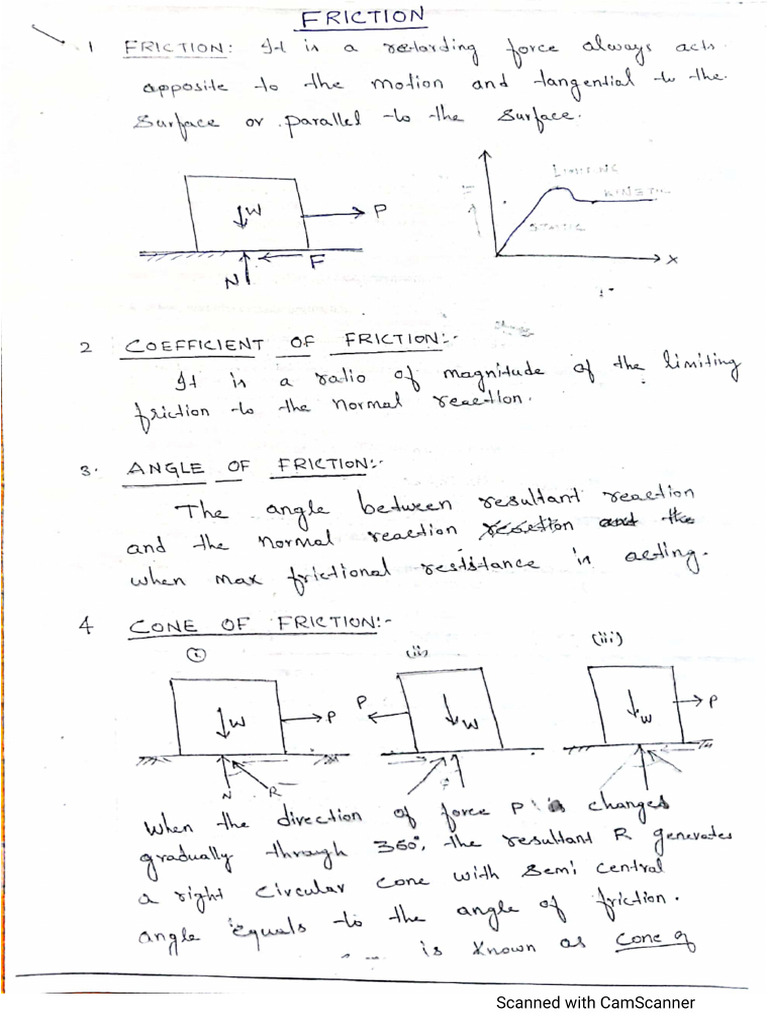 FRICTION
1 FRICTION: It is a retarding force always acts
opposite to the motion and tangential to the
Surface or parallel to the surface.
LIMITING
KINETIC
STATIC
F
X
W
P
N
F
2 COEFFICIENT OF FRICTION:-
It is a ratio of magnitude of the limiting
friction to the normal reaction.
3. ANGLE OF FRICTION:-
The angle between resultant reaction
and the normal reaction
when max frictional resistance is acting.
4 CONE OF FRICTION:-
(i) (ii) (iii)
W P P W W P
N R
When the direction of force P is changes
gradually through 360°, the resultant R generates
a right circular cone with semi central
angle equals to the angle of friction.
is known as cone of
Scanned with CamScanner